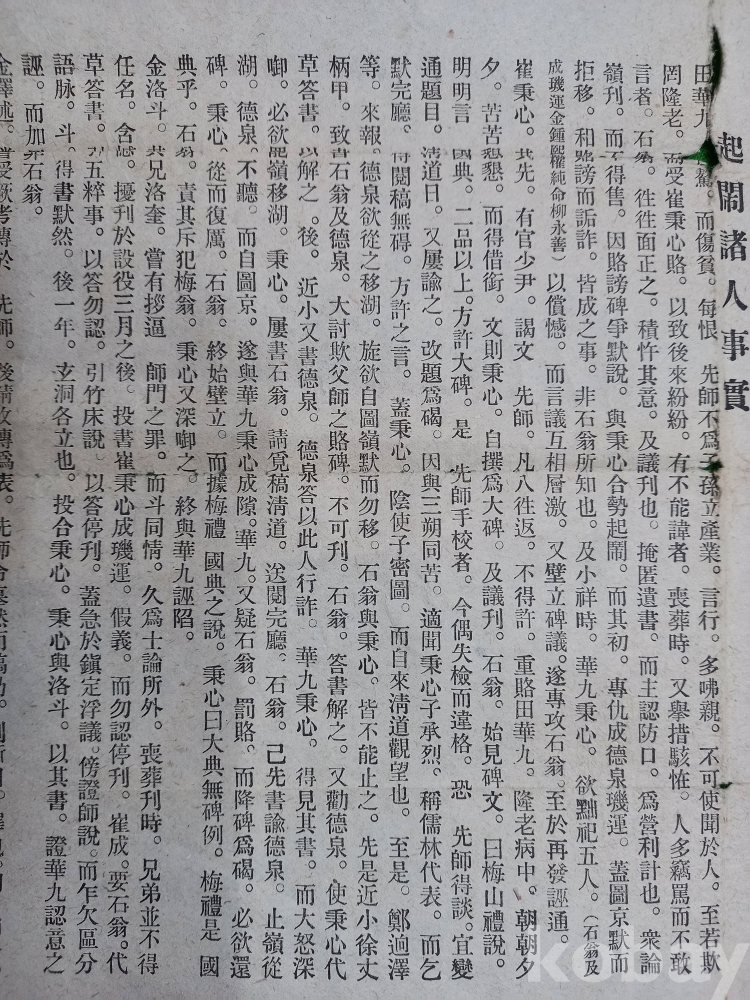 起鬧諸人事實
田華九 驁。而傷貧。每恨 先師不爲子孫立產業。言行。多咈親。不可使聞於人。至若欺
罔隆老。而受崔秉心賂。以致後來紛紛。有不能諱者。喪葬時。又擧措駭恠。人多竊罵而不敢
言者。石翁。徃徃面正之。積忤其意。及議刊也。掩匿遺書。而主認防口。爲營利計也。衆論
嶺刊。而不得售。因賂謗碑爭默說。與秉心合勢起鬧。而其初。專仇成德泉璣運。蓋圖京默而
拒移。和賂謗而詬詐。皆成之事。非石翁所知也。及小祥時。華九秉心。欲黜祀五人。(石翁及
成璣運金鍾熙權純命柳永善)以償憾。而言議互相層激。又壁立碑議。遂專攻石翁。至於再發誣通。
崔秉心。其先。有官少尹。謁文 先師。凡八徃返。不得許。重賂田華九。隆老病中。朝朝夕
夕。苦苦懇懇。而得借銜。文則秉心。自撰爲大碑。及議刊。石翁。始見碑文。曰梅山禮說。
明明言 國典。二品以上。方許大碑。是 先師手校者。今偶失檢而違格。恐 先師得談。宜變
通題目。淸道日。又屢諭之。改題爲碣。因與三朔同苦。適聞秉心子承烈。稱儒林代表。而乞
默完廳。得閱稿無碍。方許之言。蓋秉心。陰使子密圖。而自來淸道觀望也。至是。鄭逈澤
等。來報。德泉欲從之移湖。旋欲自圖嶺默而勿移。石翁與秉心。皆不能止之。先是近小徐丈
柄甲。致書石翁及德泉。大討欺父師之賂碑。不可刊。石翁。答書解之。又勸德泉。使秉心代
草答書。以解之。後。近小又書德泉。德泉答以此人行詐。華九秉心。得見其書。而大怒深
啣。必欲罷嶺移湖。秉心。屢書石翁。請覓稿淸道。送閱完廳。石翁。己先書諭德泉。止嶺從
湖。德泉。不聽。而自圖京。遂與華九秉心成隙。華九。又疑石翁。罰賂。而降碑爲碣。必欲還
碑。秉心。從而復厲。石翁。終始壁立。而據梅禮 國典之說。秉心曰大典無碑例。梅禮是 國
典乎。石翁。責其斥犯梅翁。秉心又深啣之。終與華九誣陷。
金洛斗。其兄洛奎。嘗有拶逼 師門之罪。而斗同情。久爲士論所外。喪葬刊時。兄弟並不得
任名。含憾。擾刊於設役三月之後。投書崔秉心成璣運。假義。而勿認停刊。崔成。要石翁。代
草答書。引五粹事。以答勿認。引竹床說。以答停刊。蓋急於鎭定浮議。傍證師說。而乍欠區分
語脉。斗。得書默然。後一年。玄洞各立也。投合秉心。秉心與洛斗。以其書。證華九認意之
誣。而加石翁。